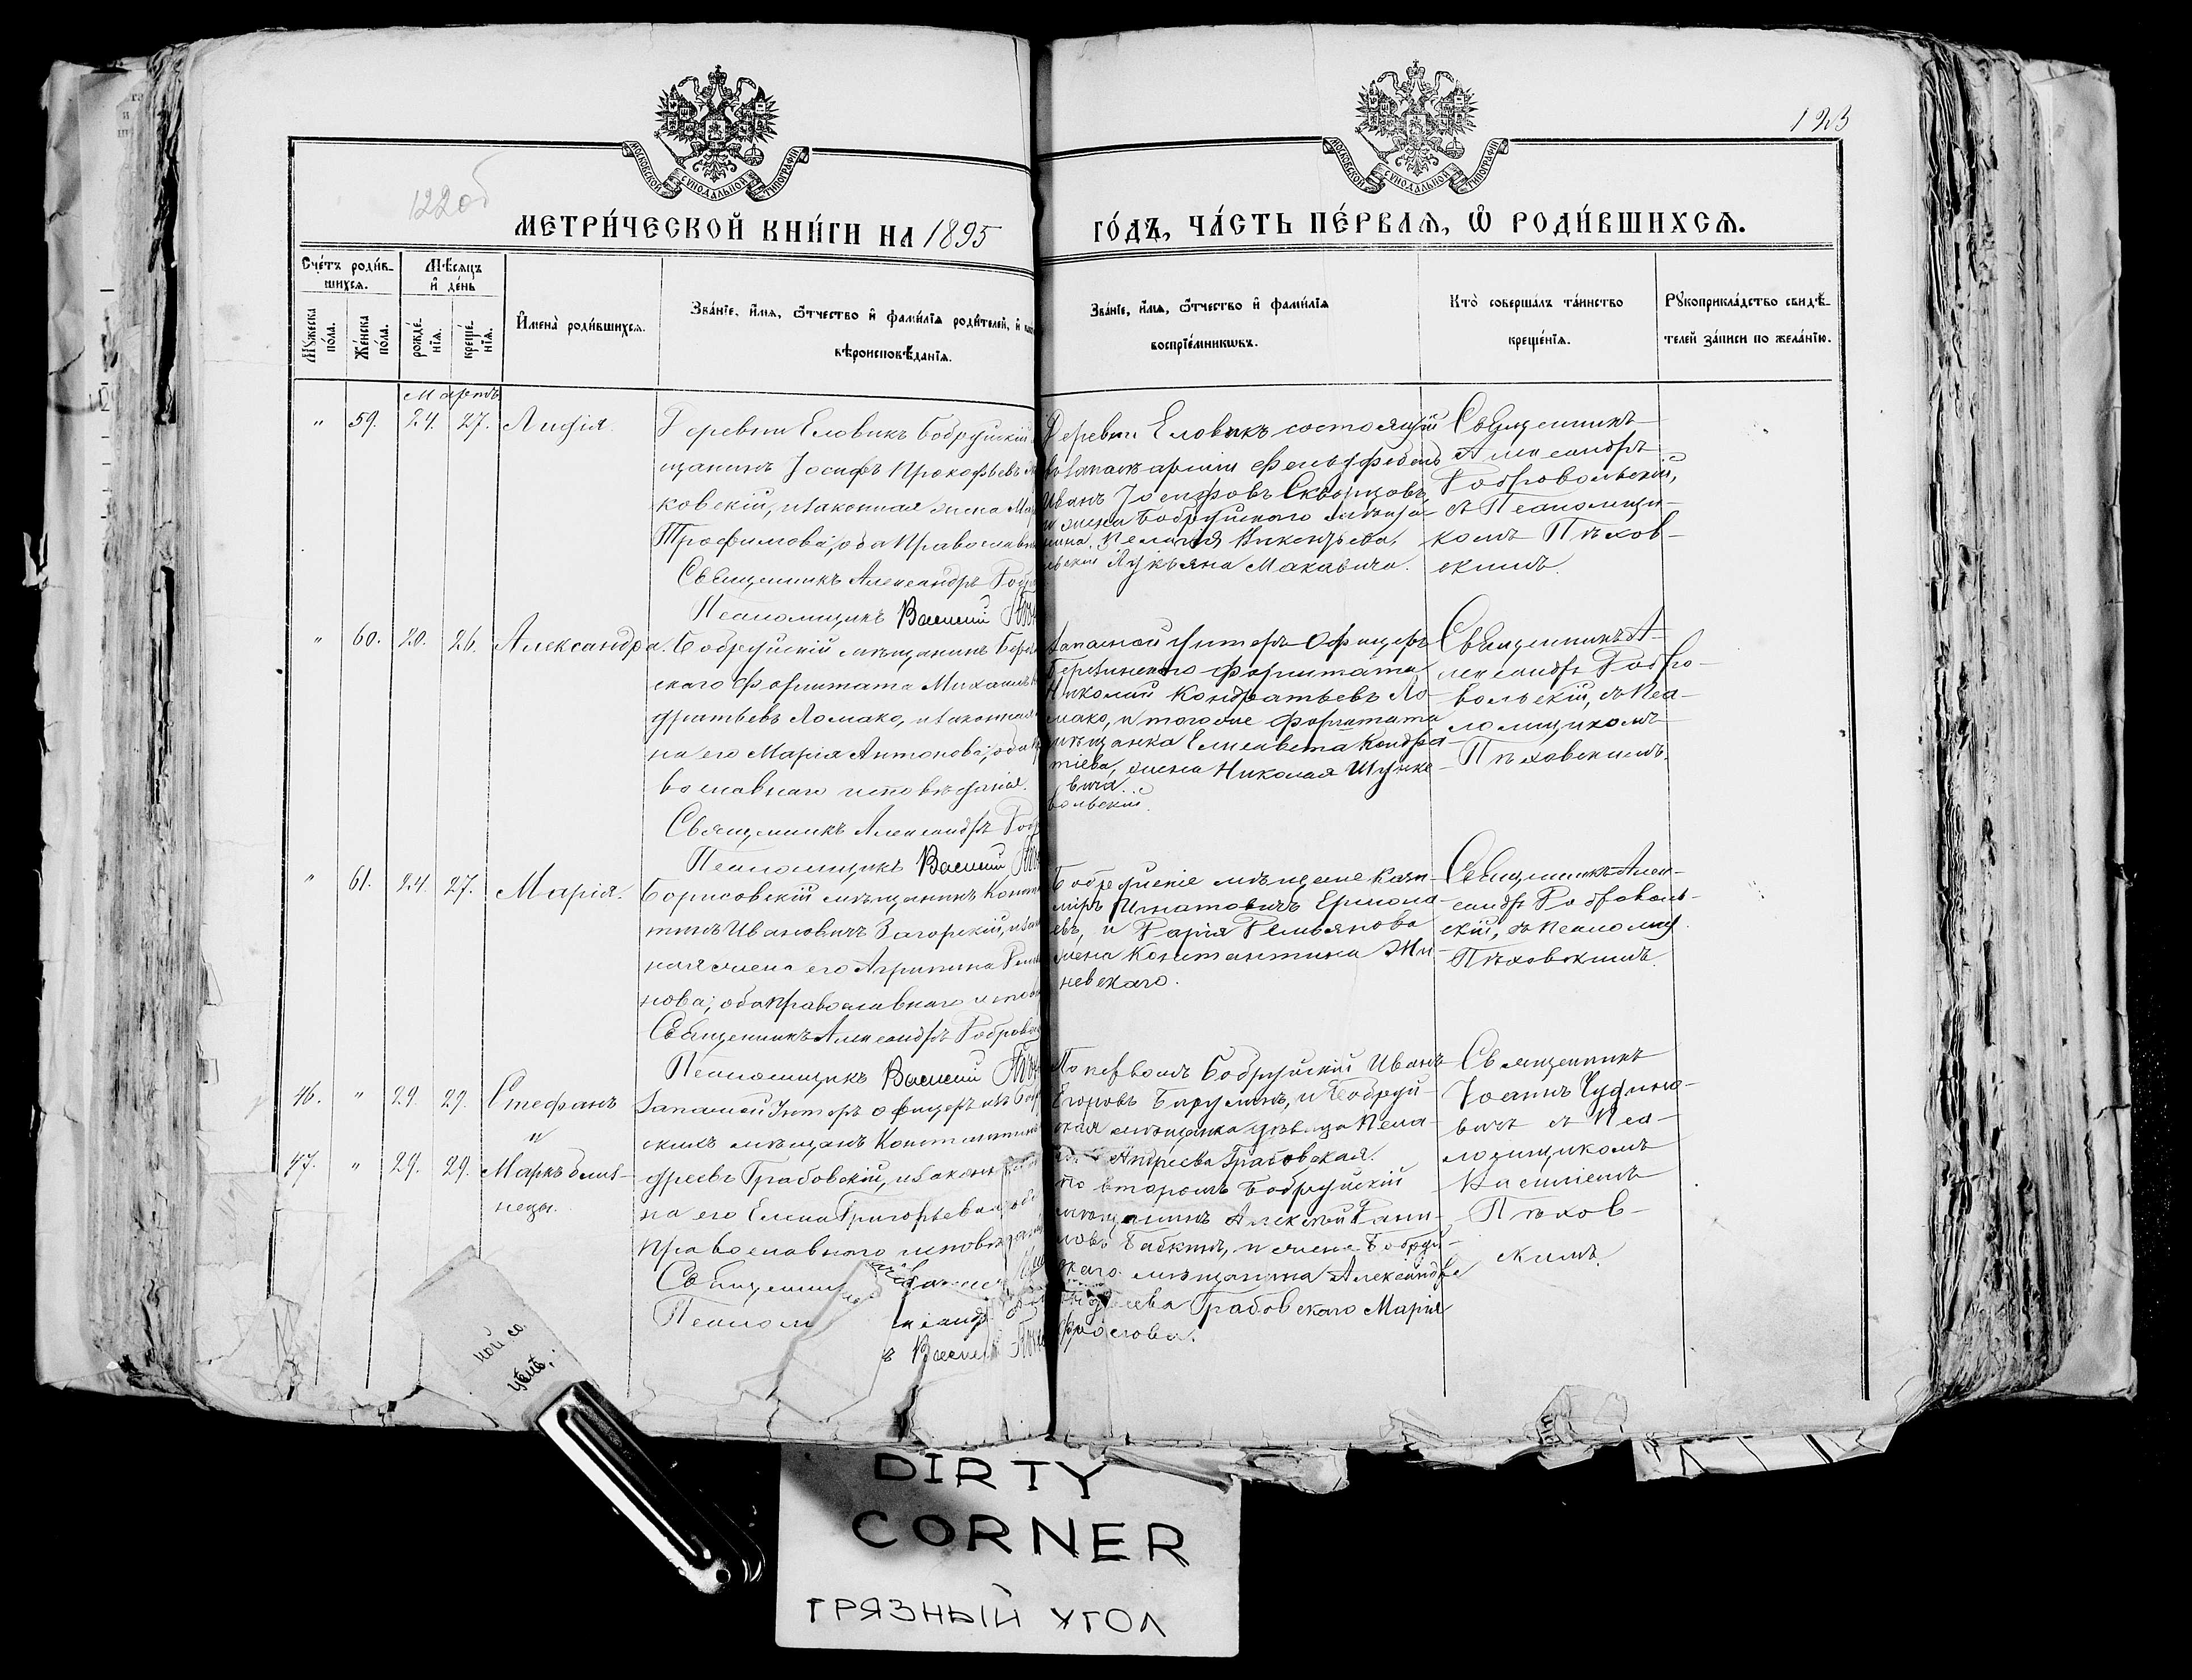 123
122об
МОСКОВСКОЙ СѴНОДАЛЬНОЙ ТИПОГРАФІИ
МОСКОВСКОЙ СѴНОДАЛЬНОЙ ТИПОГРАФІИ
МЕТРИ́ЧЕСКОЙ КНИ́ГИ НА 1895
ГО́ДЪ, ЧА́СТЬ ПЕ́РВАѦ, Ѡ҆ РОДИ́ВШИХСѦ.
Сче́тъ роди́в-
шихсѧ.
Мꙋ́жеска
по́ла.
Же́нска
по́ла.
Мѣ́сѧцъ
и҆ де́нь
рожде́-
нїѧ.
креще́-
нїѧ.
И҆мена̀ роди́вшихсѧ.
Зва́нїе, и҆́мѧ, ѻ҆́тчество и҆ фами́лїѧ роди́телей, и҆
вѣроисповѣ́данїѧ.
Зва́нїе, и҆́мѧ, ѻ҆́тчество и҆ фами́лїѧ
воспрїе́мникѡвъ.
Кто̀ соверша́лъ та́инство
креще́нїѧ.
Рꙋкоприкла́дство свидѣ́-
телей за́писи по жела́нїю.
Мартъ
" 59. 24. 27. Лидія.
Деревни Еловикъ Бобруйскій
щанинъ Іосифъ Прокофьевъ
ковскій, и законная жена
Трофимова; оба Православн
Священникъ Александръ Добр
Псаломщикъ Василій
Деревни Еловикъ состоящій
въ запасѣ арміи Фельдфебель
Иванъ Іосифовъ Скворцовъ,
и жена Бобруйскаго мѣща-
нина Пелагія Викентьева,
Лукьяна Макавича.
Священникъ
Александръ
Добровольскій,
съ Псаломщи-
комъ Пѣхов-
скимъ.
" 60. 20. 26. Александра.
Бобруйскій мѣщанинъ Бере
скаго форштата Михаилъ
дратьевъ Ломако, и законная
на его Марія Антонова; оба
вославнаго исповѣданія.
Священникъ Александръ Добр
Псаломщикъ Василій
Запасной Унтеръ-Офицеръ
Березинскаго форштата
Николай Кондратьевъ Ло-
мако, и того же форштата
мѣщанка Елисавета Кондра-
тіева, жена Николая Шунке
вича.
вольскій.
Священникъ А-
лександръ Добро-
вольскій, съ Пса-
ломщикомъ
Пѣховскимъ.
" 61. 24. 27. Марія.
Борисовскій мѣщанинъ Конст
тинъ Ивановичъ Загорскій, и зак
ная жена его Агрипина
нова; оба православнаго испов
Священникъ Александръ Доброво
Псаломщикъ Василій
Бобруйскіе мѣщане Кази-
міръ Игнатовичъ Ермола-
евъ, и Дарія Демьянова
жена Константина Жи-
невскаго.
Священникъ Алек-
сандръ Доброволь-
скій, съ Псаломщ.
Пѣховскимъ.
46. " 29. 29. Стефанъ
и
47. " 29. 29. Маркъ близ-
нецы.
Запасной Унтеръ офицеръ изъ Бобр
скихъ мѣщанъ Константинъ
дреевъ Грабовскій, и законн
на его Елена Григорьева; об
Православнаго исповѣдан
Священни
Псалом
Васил
По первомъ Бобруйскій Иванъ
Егоровъ Барулинъ, и Бобруй-
ская мѣщанка дѣвица Пела-
Андреева Грабовская.
По второмъ Бобруйскій
мѣщанинъ Алексѣй Дани-
ловъ Бабкинъ, и жена Бобруй-
скаго мѣщанина Александра
Грабовскаго Марія
Священникъ
Іоаннъ Чудино-
вичъ съ Пса-
ломщикомъ
Василіемъ
Пѣхов-
скимъ.
ной со.
DIRTY
CORNER
ГРЯЗНЫЙ УГОЛ